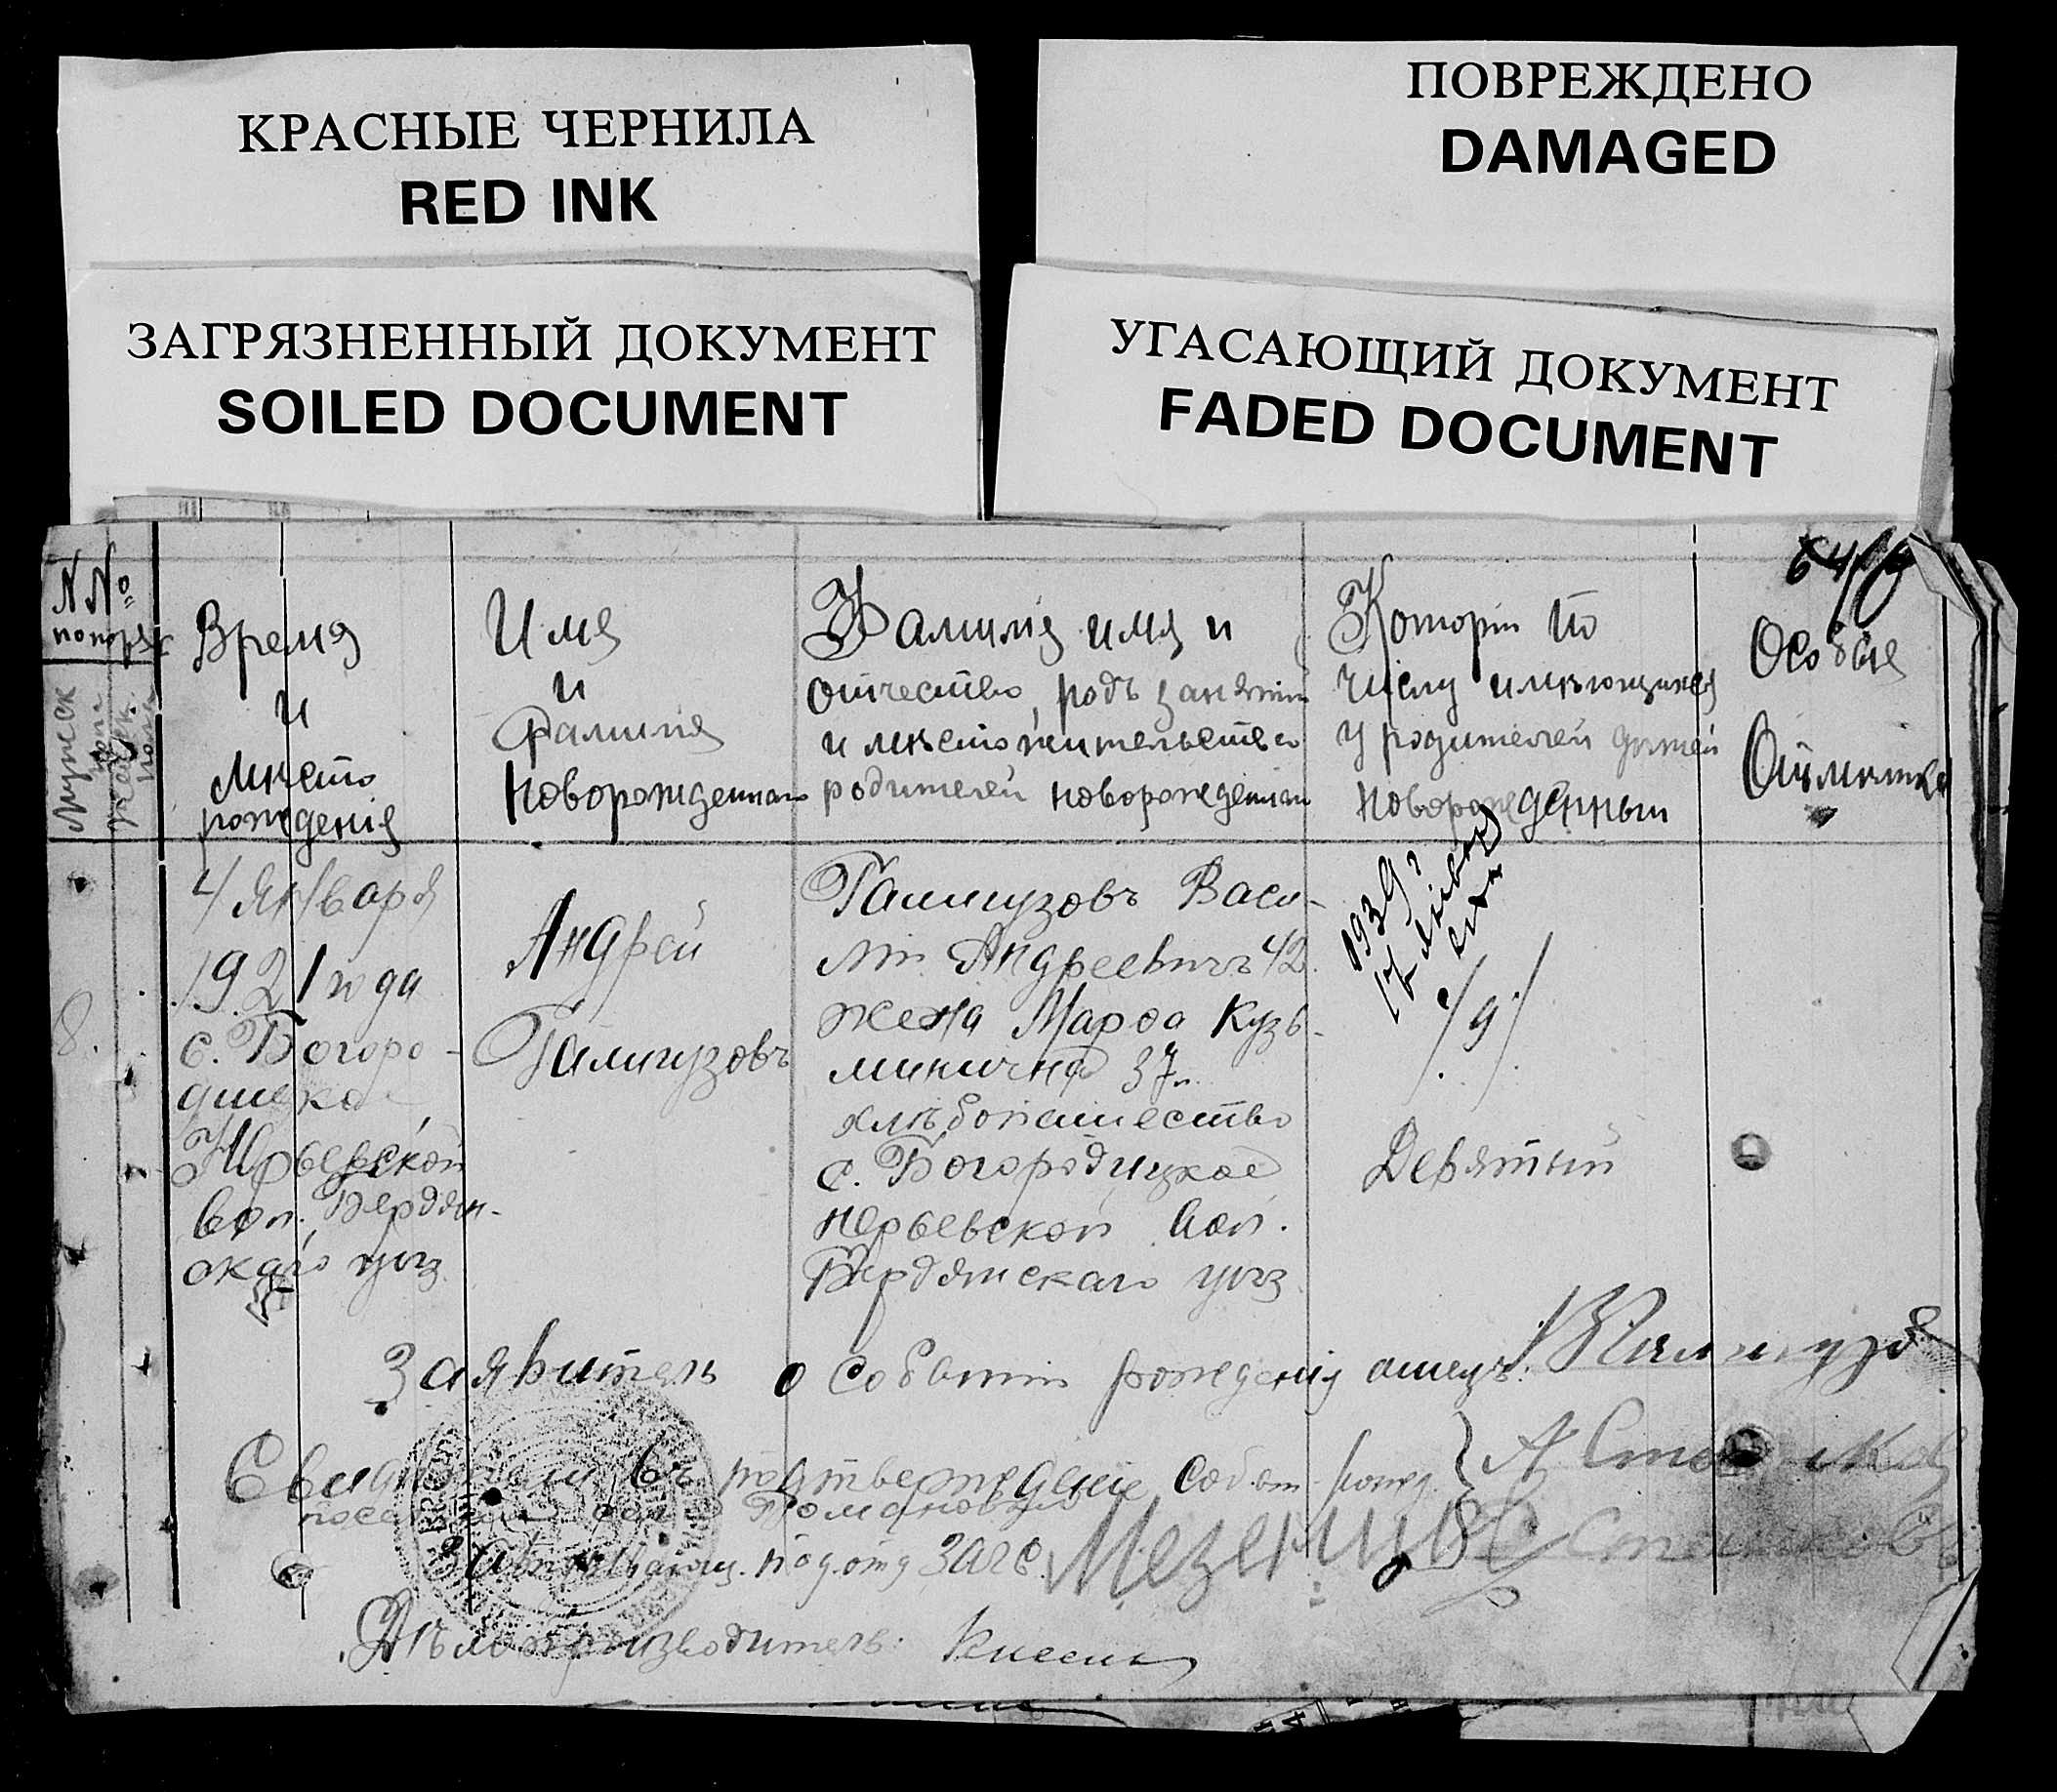 КРАСНЫЕ ЧЕРНИЛА
RED INK
ПОВРЕЖДЕНО
DAMAGED
ЗАГРЯЗНЕННЫЙ ДОКУМЕНТ
SOILED DOCUMENT
УГАСАЮЩИЙ ДОКУМЕНТ
FADED DOCUMENT
N No
Мужск
пола
женск.
пола
Время
и
мѣсто
рожденія
Имя
и
фамилія
новорожденнаго
Фамилія имя и
отчество, родъ занятій
и мѣстожительство
родителей новорожденнаго
Который по
числу имѣющихся
у родителей дѣтей
новорожденный
Особые
Отмѣтки
8.
4 января
1921 года
с. Богоро-
дицкое
Юрьевской
вол. Бердян-
скаго уѣз.
Андрей
Галигузовъ
Галигузовъ Васи-
лій Андреевичъ 42
жена Марфа Кузь-
минична 37
хлѣбопашество
с. Богородицкое
Юрьевской вол.
Бердянскаго уѣз
1939
17 января
/9/
Девятый
Заявитель о событіи рожденія отецъ: В Галигузо
Свидѣтели въ подтвержденіе событ. рожд. }
Романовка
Завѣдывающ. подотд Загс. Мезенцов
Дѣлопроизводитель: